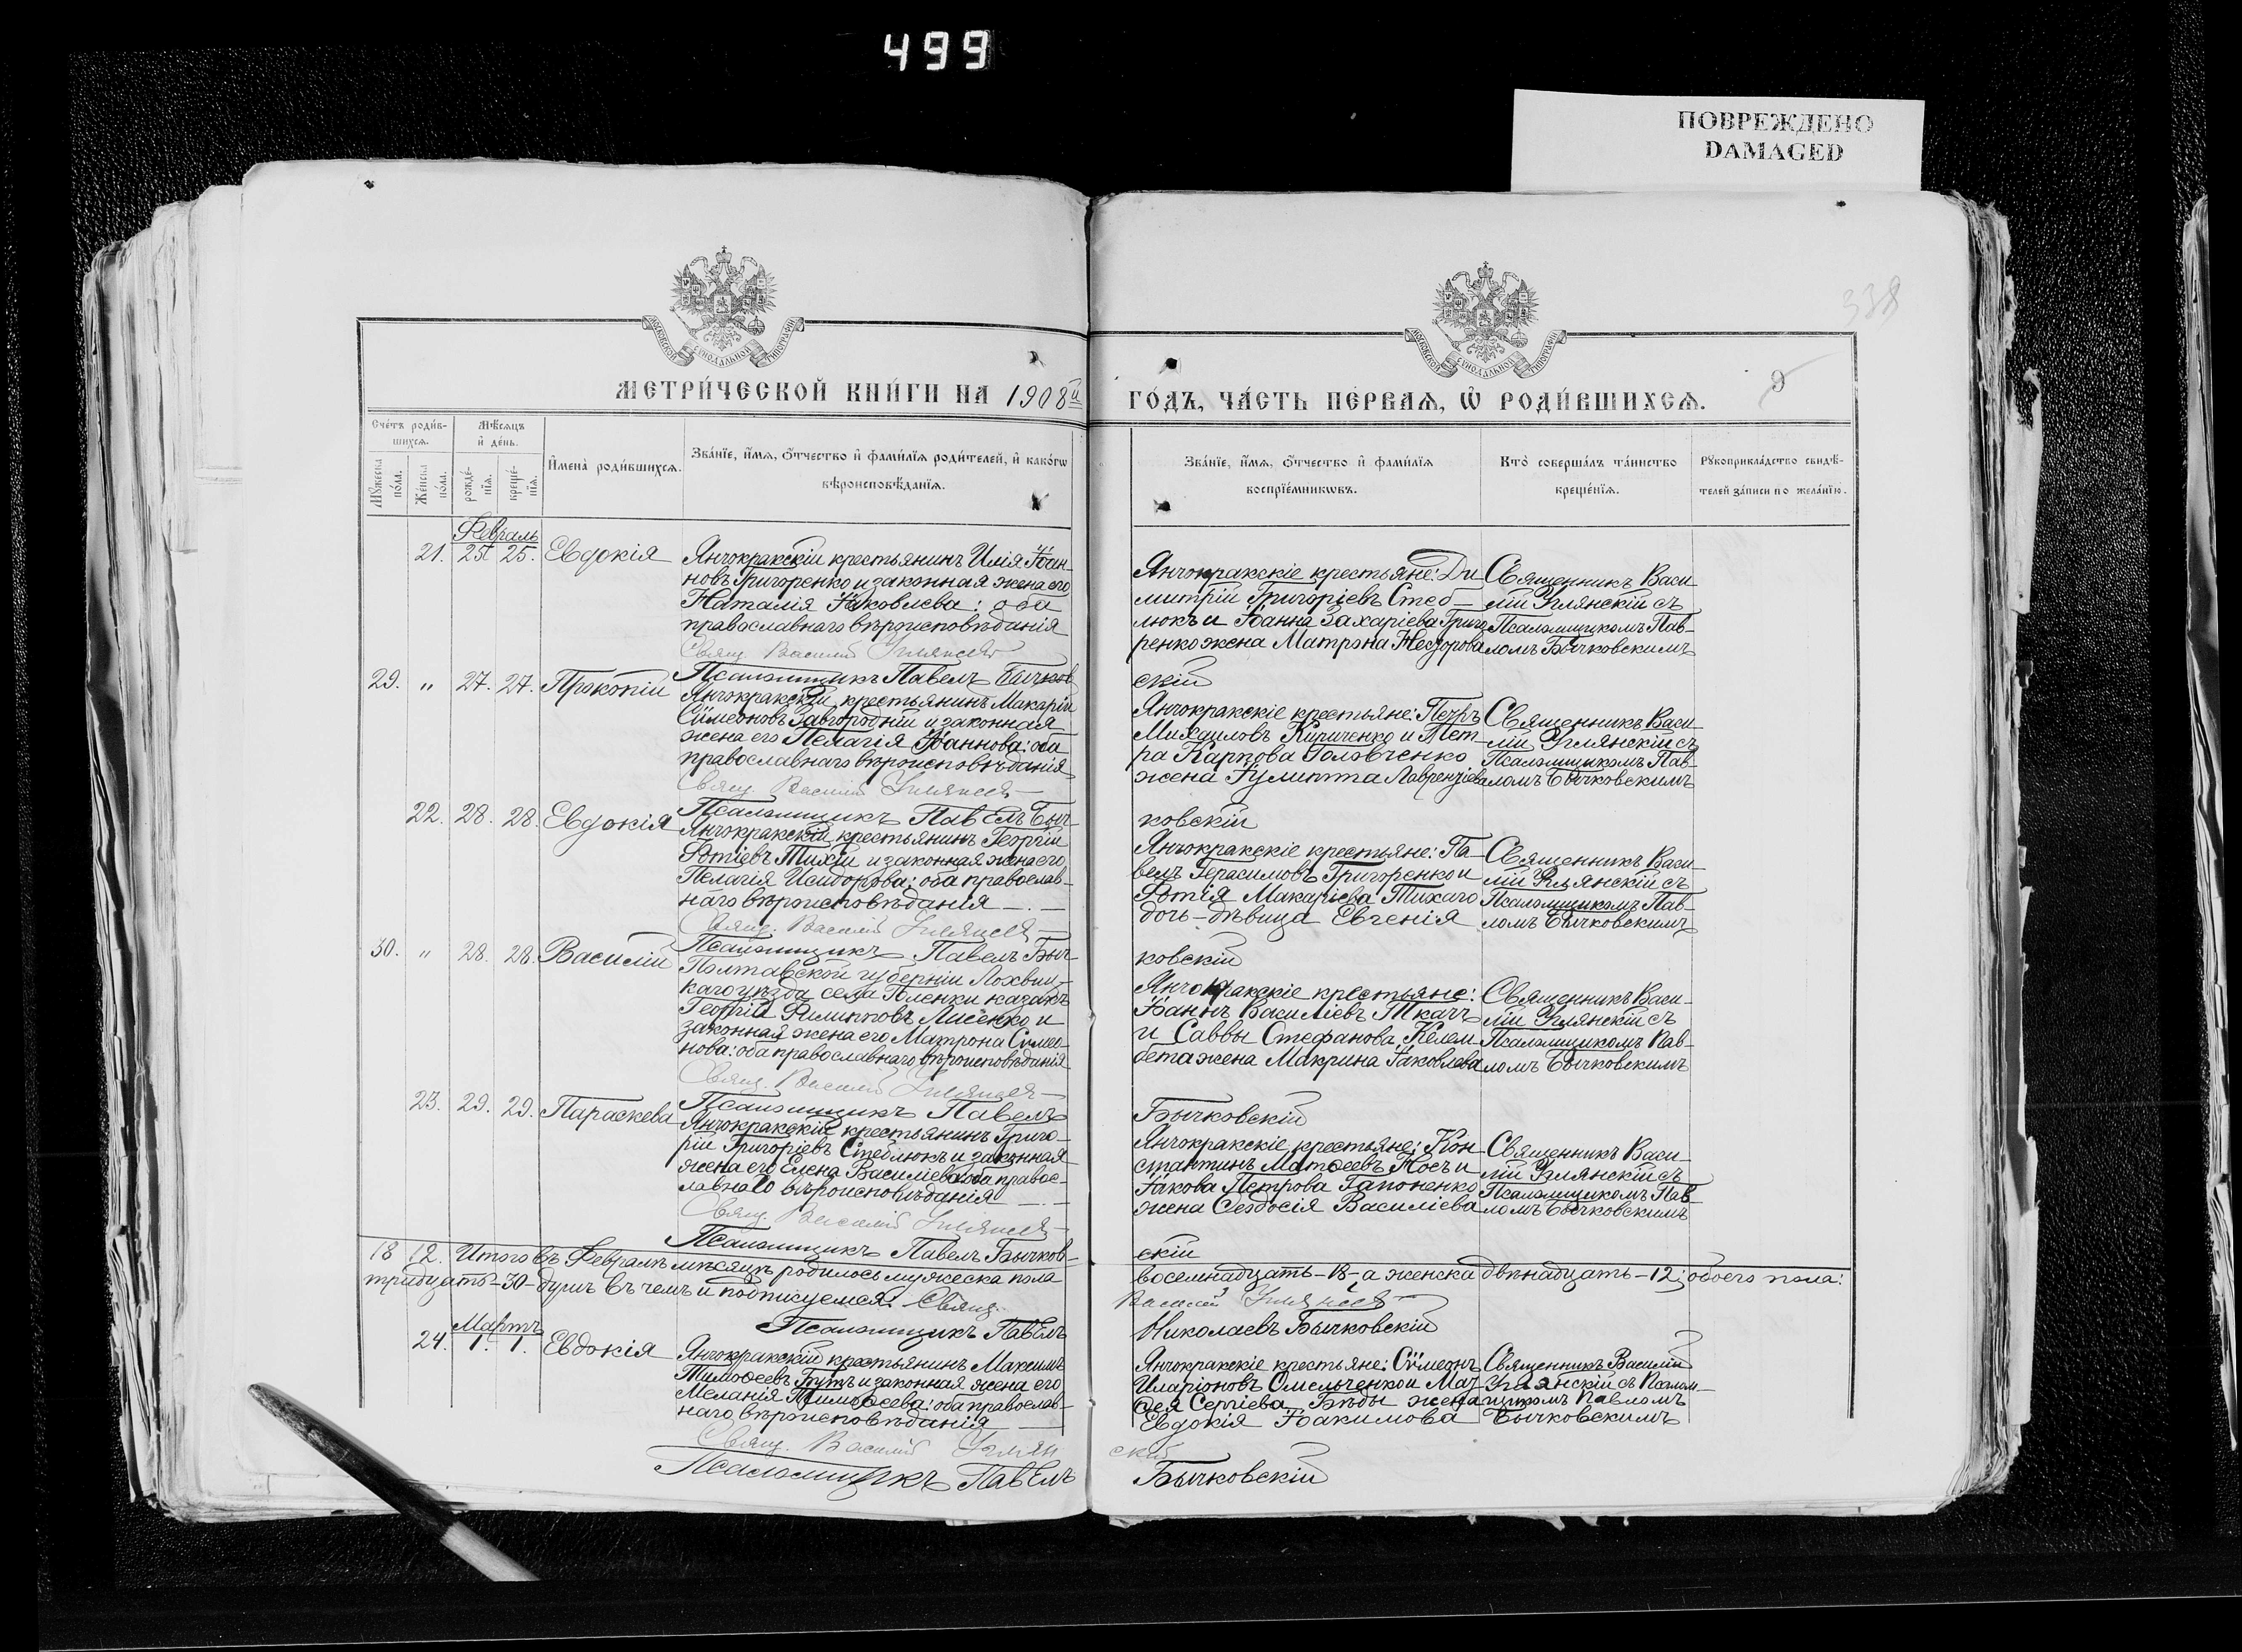 499
ПОВРЕЖДЕНО
DAMAGED
338
МОСКОВСКОЙ СѴНОДАЛЬНОЙ ТИПОГРАФІИ
МОСКОВСКОЙ СѴНОДАЛЬНОЙ ТИПОГРАФІИ
МЕТРИ́ЧЕСКОЙ КНИ́ГИ НА 1908й
ГО́ДЪ, ЧА́СТЬ ПЕ́РВАѦ, Ѡ҆ РОДИ́ВШИХСѦ.
9
Сче́тъ роди́в-
шихсѧ.
Мꙋ́жеска по́ла.
Же́нска по́ла.
Мѣ́сѧцъ
и҆ де́нь.
рожде́-
нїѧ.
креще́-
нїѧ.
И҆мена̀ роди́вшихсѧ.
Зва́нїе, и҆́мѧ, ѻ҆́тчество и҆ фами́лїѧ роди́телей, и҆ како́гѡ
вѣроисповѣ́данїѧ.
Зва́нїе, и҆́мѧ, ѻ҆́тчество и҆ фами́лїѧ
воспрїе́мникѡвъ.
Кто̀ соверша́лъ та́инство
креще́нїѧ.
Рꙋкоприкла́дство свидѣ́-
телей за́писи по жела́нїю.
Февраль
21. 25. 25. Евдокія
Янчокракскій крестьянинъ Илія Іоан-
новъ Григоренко и законная жена его
Наталія Іаковлева: оба
православнаго вѣроисповѣданія
Свящ. Василій Углянскій
Псаломщикъ Павелъ Бычков
Янчокракскіе крестьяне: Ди-
митрій Григоріевъ Стеб-
люкъ и Іоанна Захаріева Григо
ренко жена Матрона Неѳдорова
скій
Священникъ Васи
лій Углянскій съ
Псаломщикомъ Пав-
ломъ Бычковскимъ
29. " 27. 27. Прокопій
Янчокракскій крестьянинъ Макарій
Сѵмеоновъ Завгородній и законная
жена его Пелагія Іоаннова: оба
православнаго вѣроисповѣданія
Свящ. Василій Углянскій
Псаломщикъ Павелъ Быч-
Янчокракскіе крестьяне: Петръ
Михаиловъ Кириченко и Пет-
ра Карпова Головченко
жена Іулитта Лаврентіева
ковскій
Священникъ Васи-
лій Углянскій съ
Псаломщикомъ Пав-
ломъ Бычковскимъ
22. 28. 28. Евдокія
Янчокракскій крестьянинъ Георгій
Фотіевъ Тихій и законная жена его
Пелагія Исидорова: оба православ-
наго вѣроисповѣданія
Свящ. Василій Углянскій
Псаломщикъ Павелъ Быч-
Янчокракскіе крестьяне: Па-
велъ Герасимовъ Григоренко и
Фотія Макаріева Тихаго
дочь-дѣвица Евгенія
ковскій
Священникъ Васи-
лій Углянскій съ
Псаломщикомъ Пав-
ломъ Бычковскимъ
30. " 28. 28. Василій
Полтавской губерніи Лохвиц-
каго уѣзда села Голенки казакъ
Георгій Филипповъ Лисенко и
законная жена его Матрона Сѵмео-
нова: оба православнаго вѣроисповѣданія
Свящ. Василій Углянскій
Псаломщикъ Павелъ
Янчокракскіе крестьяне:
Іоаннъ Василіевъ Ткачъ
и Саввы Стефанова Келем-
бета жена Макрина Іаковлева
Бычковскій
Священникъ Васи-
лій Углянскій съ
Псаломщикомъ Пав-
ломъ Бычковскимъ
23. 29. 29. Параскева
Янчокракскій крестьянинъ Григо-
рій Григоріевъ Стеблюкъ и законная
жена его Елена Василіева: оба правос-
лавнаго вѣроисповѣданія
Свящ. Василій Углянскій
Псаломщикъ Павелъ Бычков-
Янчокракскіе крестьяне: Кон-
стантинъ Матѳеевъ Носъ и
Іакова Петрова Гапоненко
жена Ѳеодосія Василіева
скій
Священникъ Васи-
лій Углянскій съ
Псаломщикомъ Пав-
ломъ Бычковскимъ
18 12. Итого въ Февралѣ мѣсяцѣ родилось мужеска пола восемнадцать-18-а женска двѣнадцать-12; обоего пола:
тридцать-30-душъ въ чемъ и подписуемся: Свящ. Василій Углянскій
Псаломщикъ Павелъ Николаевъ Бычковскій
Мартъ
24. 1. 1. Евдокія
Янчокракскій крестьянинъ Максимъ
Тимоѳеевъ Бутъ и законная жена его
Меланія Тимоѳеева: оба православ-
наго вѣроисповѣданія
Свящ. Василій Углян
Псаломщикъ Павелъ
Янчокракскіе крестьяне: Сѵмеонъ
Иларіоновъ Омельченко и Мат-
ѳея Сергіева Бѣды жена
Евдокія Іоакимова
скій
Бычковскій
Священникъ Василій
Углянскій съ Псалом-
щикомъ Павломъ
Бычковскимъ